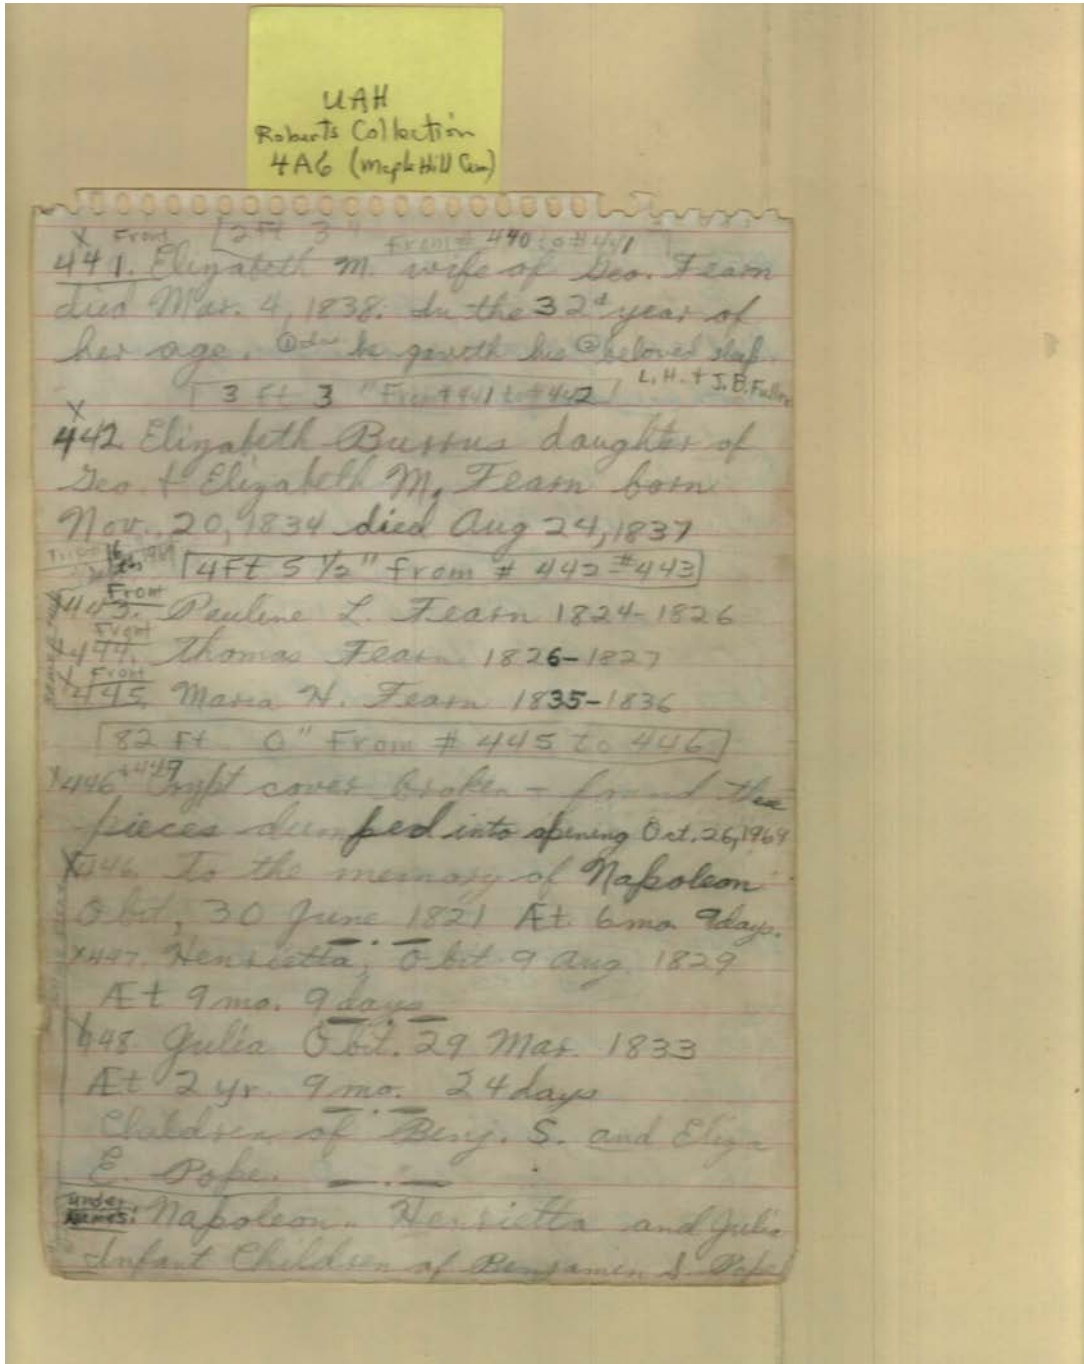 UAH
Roberts Collection
4A6 (Maple Hill Cem)
X Front 2 Ft 3" From # 440 to # 441
441. Elizabeth M. wife of Geo. Fearn
died Mar. 4, 1838. In the 32d year of
her age. ① he giveth his ② beloved sleep.
L. H. + J. B. Fuller
3 Ft 3" From # 441 to # 442
X
442 Elizabeth Burrus daughter of
Geo. + Elizabeth M. Fearn born
Nov. 20, 1834 died Aug 24, 1837
16, 1969
4 Ft 5 1/2" from # 442 # 443
Front
X 443. Pauline L. Fearn 1824-1826
Front
X 444. Thomas Fearn 1826-1827
X Front
445. Maria H. Fearn 1835-1836
82 Ft 0" From # 445 to 446
X 446 + 449 Crypt cover broken - found these
pieces dumped into opening Oct. 26, 1969
X 446. To the memory of Napoleon
Obit, 30 June 1821 Æt. 6 mo. 9 days.
X 447. Henrietta, Obit 9 Aug. 1829
Æt 9 mo. 9 days
X 448 Julia Obit. 29 Mar. 1833
Æt 2 yr. 9 mo. 24 days
Children of Benj. S. and Eliza
E. Pope.
under
Names: Napoleon - Henrietta and Julia
Infant Children of Benjamin S. Pope